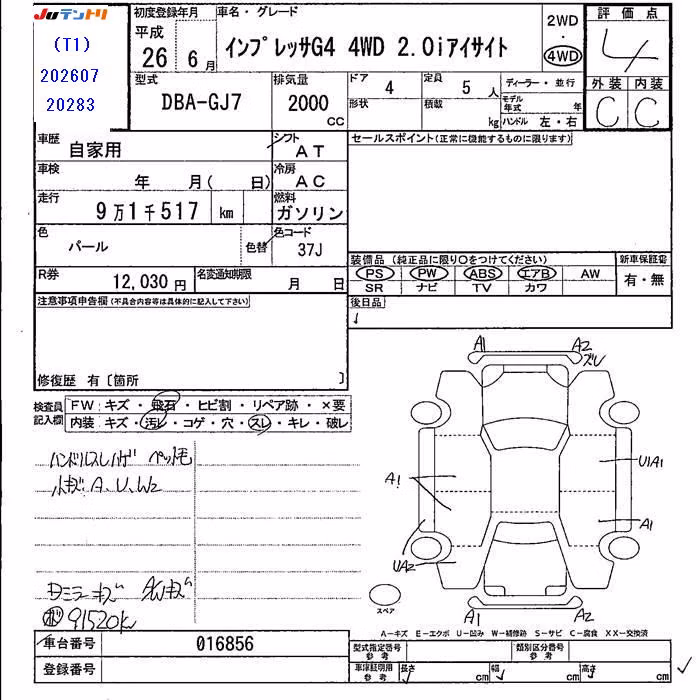 Juテントリ
(T1)
202607
20283
初度登録年月 車名・グレード
平成
26 6月
インプレッサG4 4WD 2.0iアイサイト
2WD
・
4WD
評価点
4
型式
DBA-GJ7
排気量
2000
CC
ドア 4 定員 5人
形状 積載 kg
ディーラー・並行
モデル年式 年
ハンドル 左・右
外装 内装
C C
車歴 自家用
シフト AT
車検 年 月( 日)
冷房 AC
走行 9万1千517 km
燃料 ガソリン
色 パール 色替
色コード 37J
R券 12,030円
名変通知期限 月 日
セールスポイント(正常に機能するものに限ります)
装備品(純正品に限り○をつけてください)
PS PW ABS エアB AW
SR ナビ TV カワ
新車保証書
有・無
後日品
注意事項申告欄(不具合内容等は具体的に記入して下さい)
修復歴 有〔箇所 〕
検査員記入欄
FW キズ・飛石・ヒビ割・リペア跡・×要
内装 キズ・汚レ・コゲ・穴・スレ・キレ・破レ
ハンドルスレハゲ ペット毛
小キズ A、U、W2
ミラーキズ
91520K
A1 A2
ズレ
A1
U1A1
A1
UA2
A1 A2
スペア
A-キズ E-エクボ U-凹み W-補修跡 S-サビ C-腐食 XX-交換済
車台番号 016856
登録番号
型式指定番号 参考 類別区分番号 参考
車庫証明用 参考 長さ cm 幅 cm 高さ cm